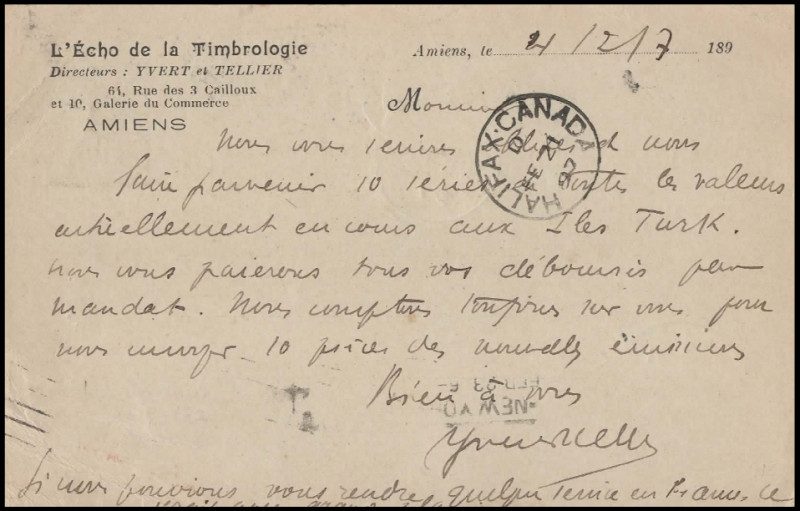 L'Écho de la Timbrologie
Directeurs : YVERT et TELLIER
64, Rue des 3 Cailloux
et 10, Galerie du Commerce
AMIENS
Amiens, le 4/2/7 189
Monsieur
HALIFAX·CANADA
D
FE 21
97
Nous vous serions obligés de nous
faire parvenir 10 séries de toutes les valeurs
actuellement en cours aux Iles Turk.
Nous vous paierons tous vos déboursés par
mandat. Nous comptons toujours sur vous pour
nous envoyer 10 pièces des nouvelles émissions
Bien à vous
NEW YO
FEB 23
Yvert & Tellier
Si nous pouvions vous rendre quelque service en France, ce